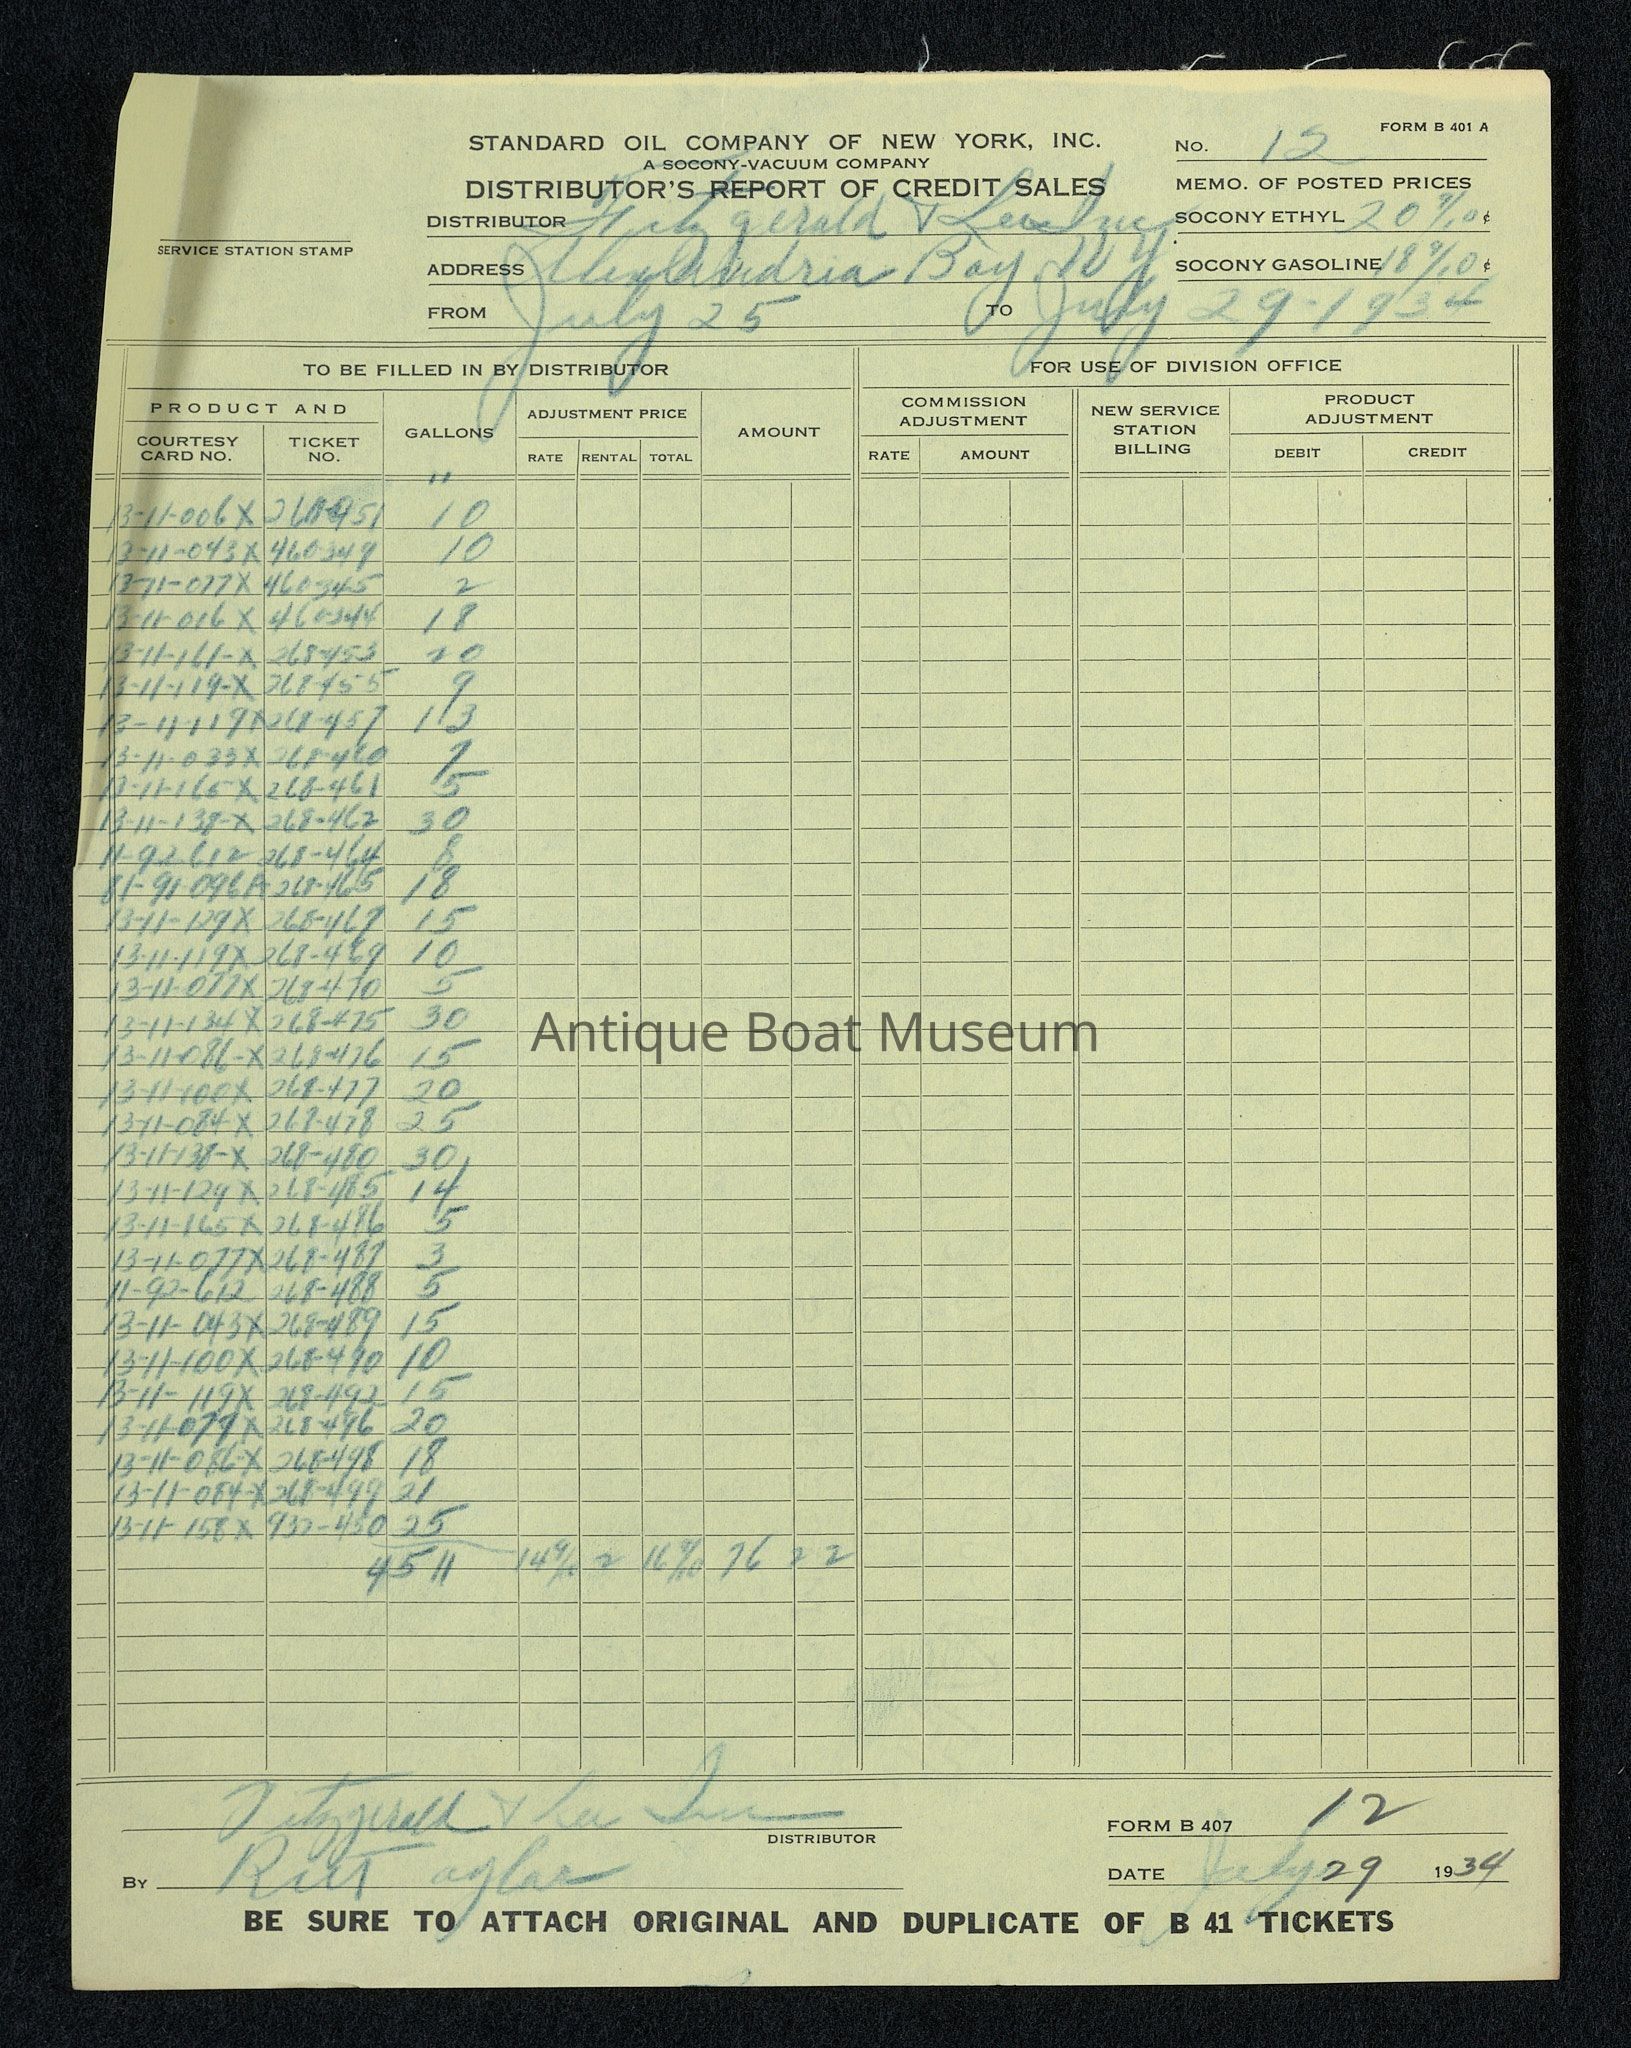 FORM B 401 A
STANDARD OIL COMPANY OF NEW YORK, INC.
No. 12
A SOCONY-VACUUM COMPANY
MEMO. OF POSTED PRICES
DISTRIBUTOR'S REPORT OF CREDIT SALES
DISTRIBUTOR Fitzgerald & Lee Inc
SOCONY ETHYL 20 9/10 ¢
SERVICE STATION STAMP
ADDRESS Alexandria Bay NY
SOCONY GASOLINE 18 9/10 ¢
FROM July 25 TO July 29-1934
TO BE FILLED IN BY DISTRIBUTOR
FOR USE OF DIVISION OFFICE
PRODUCT AND
COURTESY CARD NO.
TICKET NO.
GALLONS
ADJUSTMENT PRICE
RATE RENTAL TOTAL
AMOUNT
COMMISSION ADJUSTMENT
RATE AMOUNT
NEW SERVICE STATION BILLING
PRODUCT ADJUSTMENT
DEBIT CREDIT
"
13-11-006X 10
13-11-043X 460349 10
13-11-077X 460345 2
13-11-016 X 460344 18
13-11-161-X 268-453 20
13-11-119-X 268-455 9
13-11-119X 268-457 13
13-11-033X 268-460 7
13-11-165X 268-461 5
13-11-138-X 268-462 30
11-92612 268-464 8
81-91-096A 268-465 18
13-11-129X 268-467 15
13-11-119X 268-469 10
13-11-077X 268-470 5
13-11-134X 268-475 30
13-11-086-X 268-476 15
13-11-100X 268-477 20
13-11-084-X 268-478 25
13-11-138-X 268-480 30
13-11-129X 268-485 14
13-11-165X 268-486 5
13-11-077X 268-487 3
11-92-612 268-488 5
13-11-043X 268-489 15
13-11-100X 268-490 10
13-11-119X 268-492 15
13-11-079X 268-496 20
13-11-086-X 268-498 18
13-11-084-X 268-499 21
13-11-158X 937-450 25
451 14 9/10 2 16 9/10 76 22
Antique Boat Museum
Fitzgerald & Lee Inc
DISTRIBUTOR
FORM B 407 12
By
DATE July 29 1934
BE SURE TO ATTACH ORIGINAL AND DUPLICATE OF B 41 TICKETS